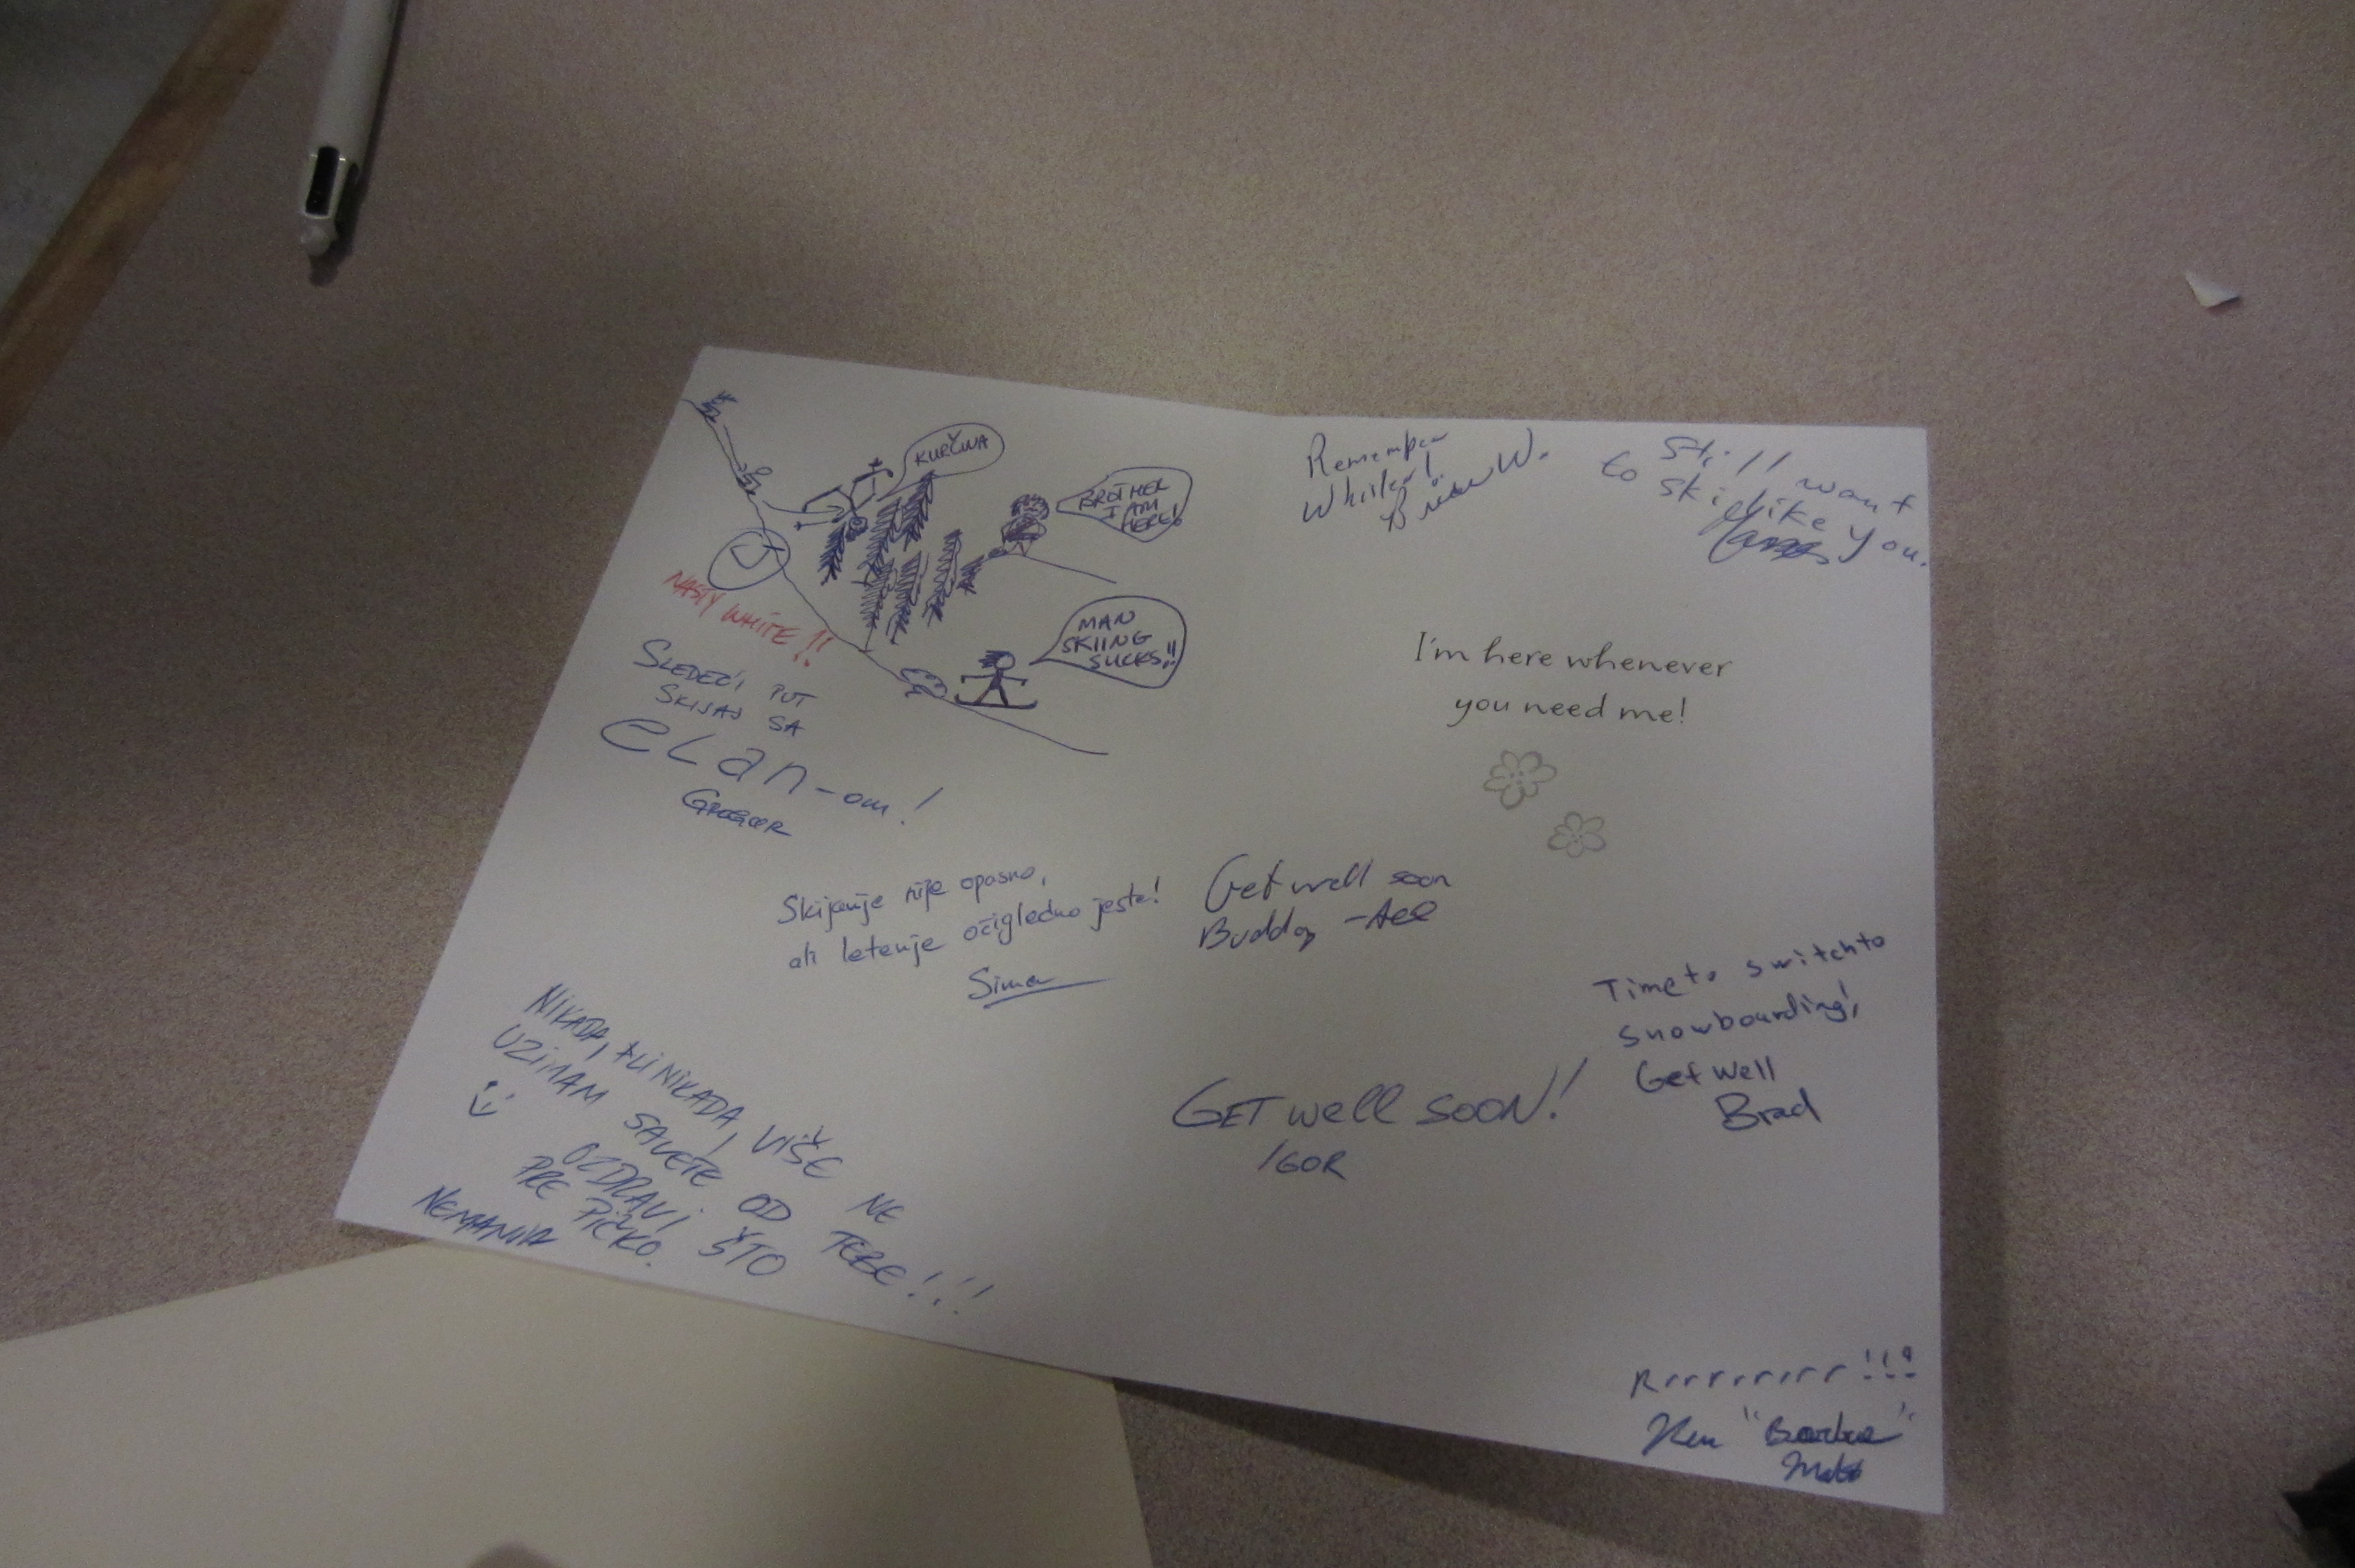 KURČINA
BROTHER
I AM
HERE!
MAN
SKIING
SUCKS!!
NASTY WHITE!!
SLEDEĆI PUT
SKIJAJ SA
eLan-om!
GREGOR
Skijanje nije opasno,
ali letenje očigledno jeste!
Sima
NIKADA, ALI NIKADA, VIŠE NE
UZIMAM SAVETE OD TEBE!!!
OZDRAVI ŠTO
PRE PIČKO.
NEMANJA
Remember
Whistler!
Brian W.
Still want
to ski like you.
I'm here whenever
you need me!
Get well soon
Buddy
Time to switch to
snowboarding!
Get well
Brad
GET well SOON!
IGOR
Rrrrrrrrr!!!
Ken